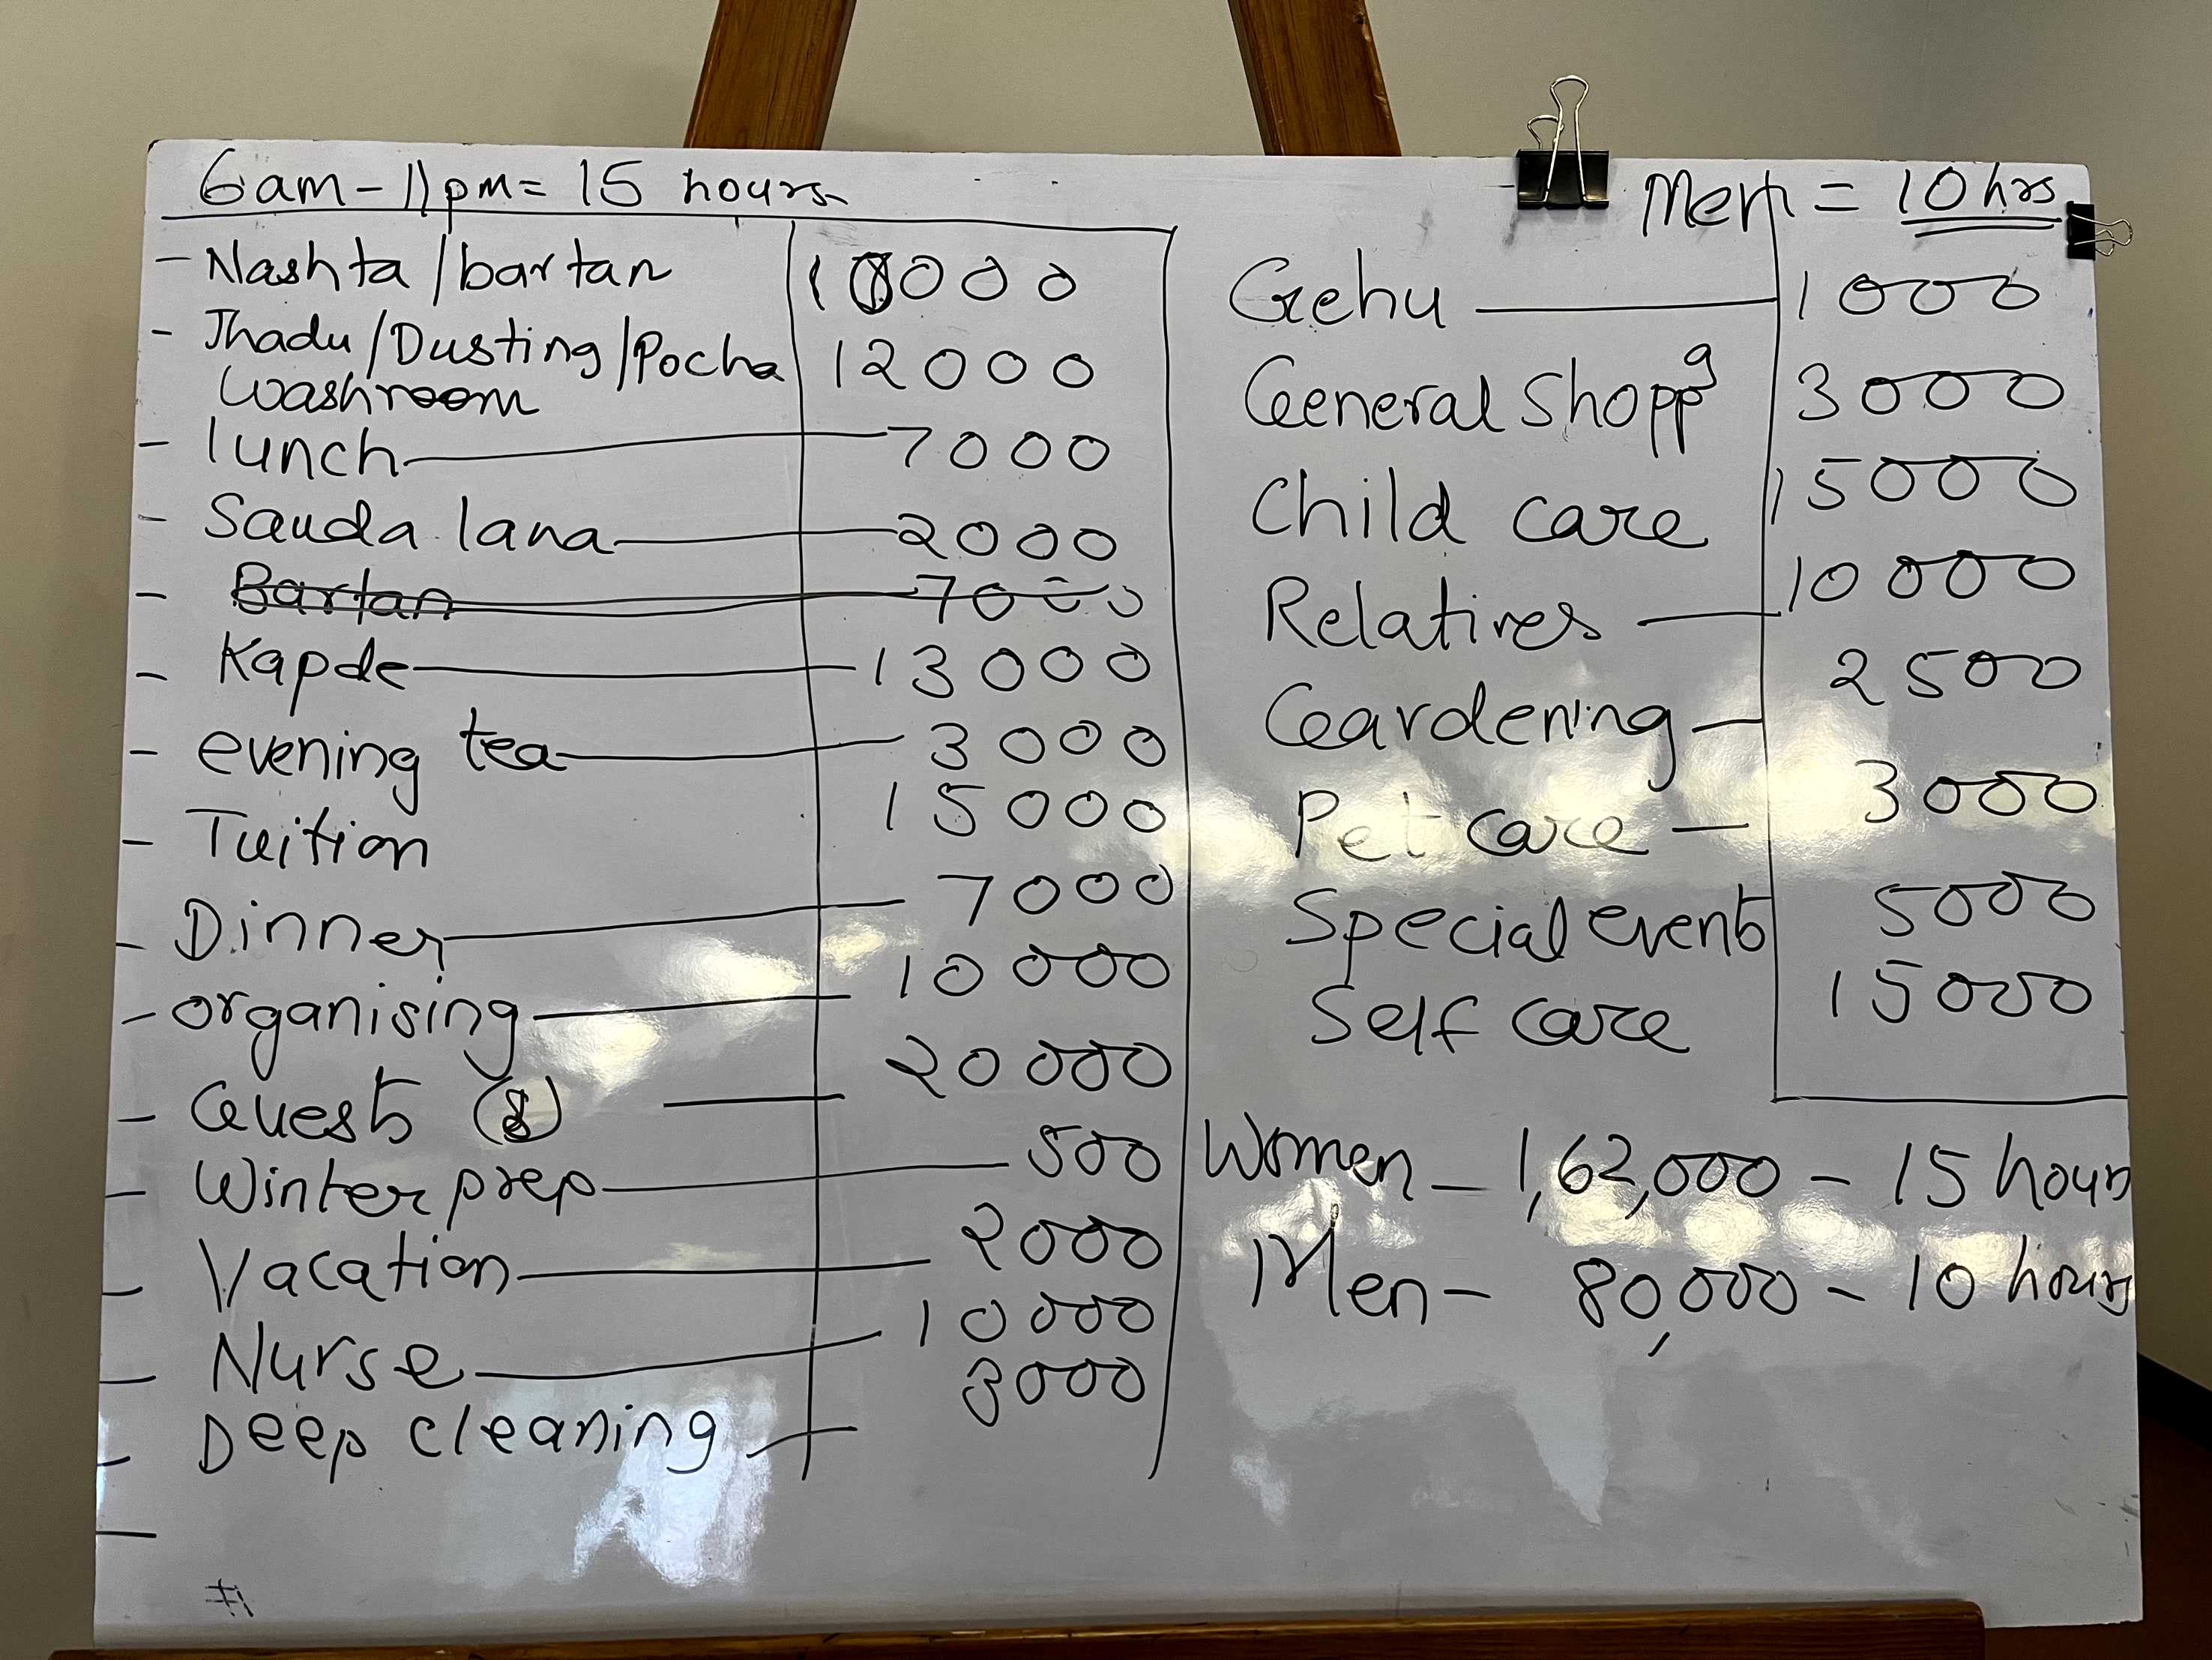 6am - 11pm = 15 hours
- Nashta/bartan 10000
- Jhadu/Dusting/Pocha 12000
Washroom
- lunch 7000
- Sauda lana 2000
- Bartan 7000
- Kapde 13000
- evening tea 3000
- Tuition 15000
- Dinner 7000
- organising 10000
- Guests 20000
- Winter prep 500
- Vacation 2000
- Nurse 10000
- Deep cleaning 3000
Men = 10 hrs
Gehu 1000
General Shoppg 3000
Child care 15000
Relatives 10000
Gardening 2500
Pet care 3000
Special events 5000
Self care 15000
Women - 1,62,000 - 15 hours
Men - 80,000 - 10 hours